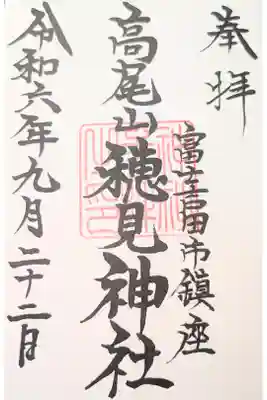 奉拝
富士吉田市鎮座
高尾山穂見神社
令和六年九月二十二日
神社
之印